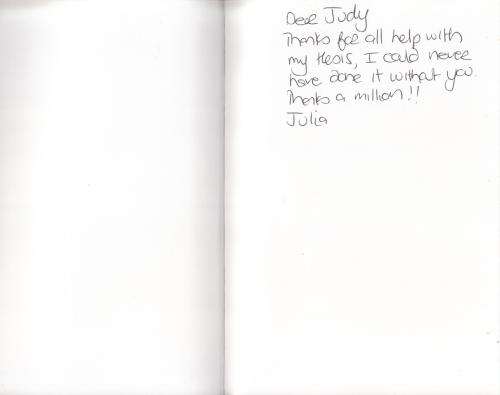 Dear Judy
Thanks for all help with
my thesis, I could never
have done it without you.
Thanks a million!!
Julia